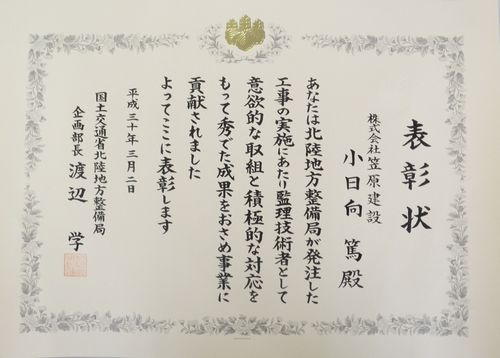 表彰状
株式会社笠原建設
小日向 篤殿
あなたは北陸地方整備局が発注した
工事の実施にあたり監理技術者として
意欲的な取組と積極的な対応を
もって秀でた成果をおさめ事業に
貢献されました
よってここに表彰します
平成三十年三月二日
国土交通省北陸地方整備局
企画部長 渡辺 学